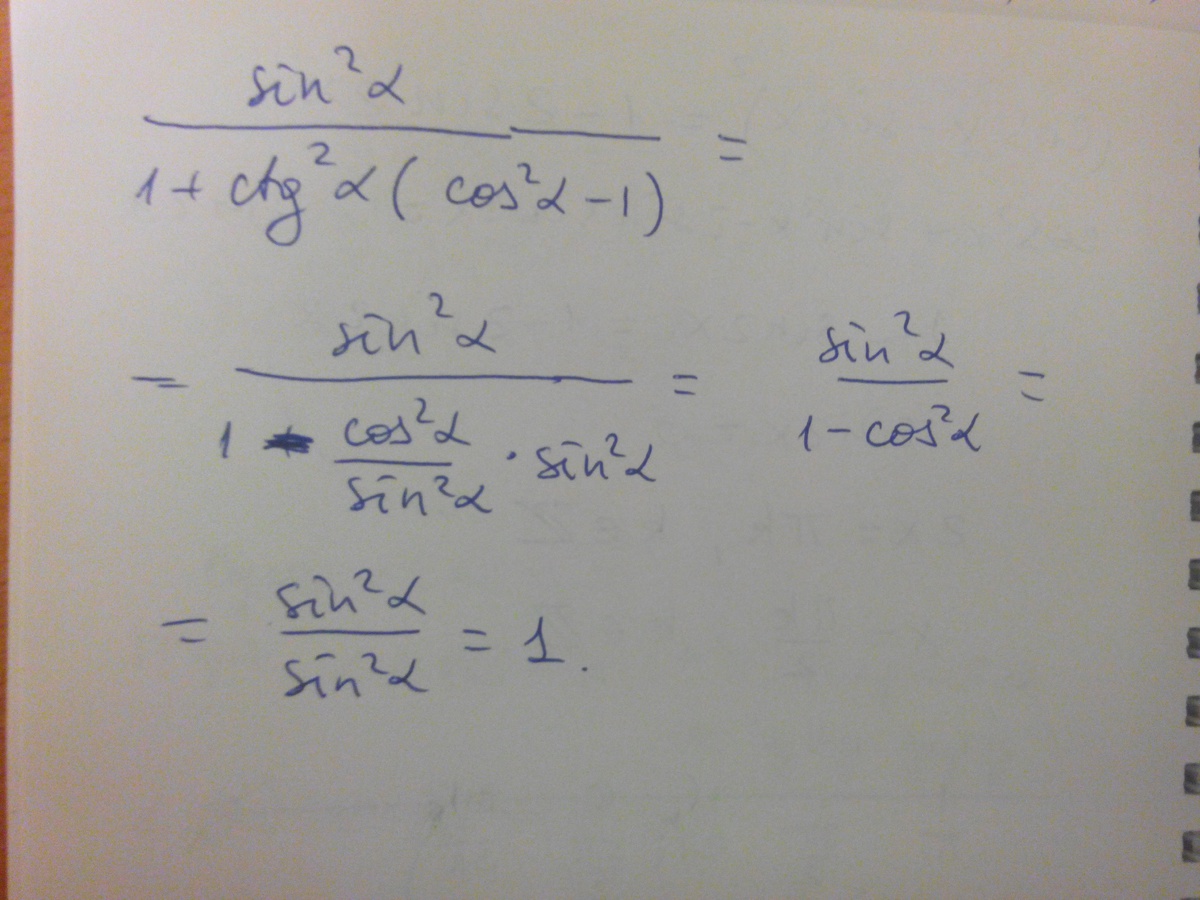 sin²α
1 + ctg²α ( cos²α - 1 ) =
= sin²α / 1 - cos²α / sin²α · sin²α = sin²α / 1 - cos²α =
= sin²α / sin²α = 1.